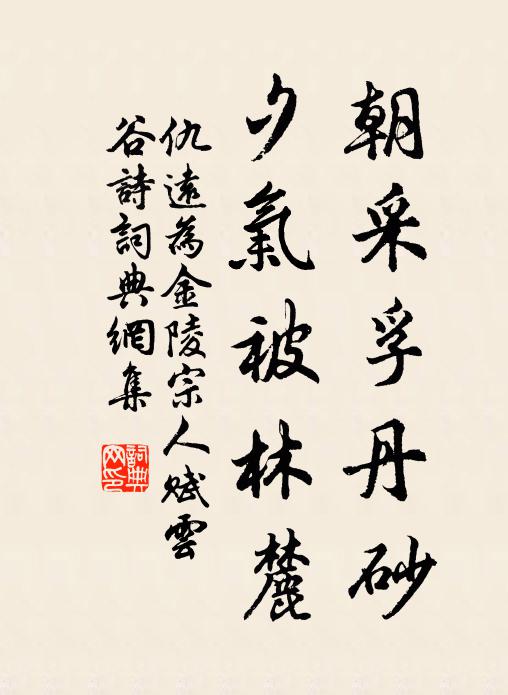 朝采孚丹砂
夕氣被林麓
仇遠為金陵宗人賦雲
谷詩詞典網集
詞典
网印